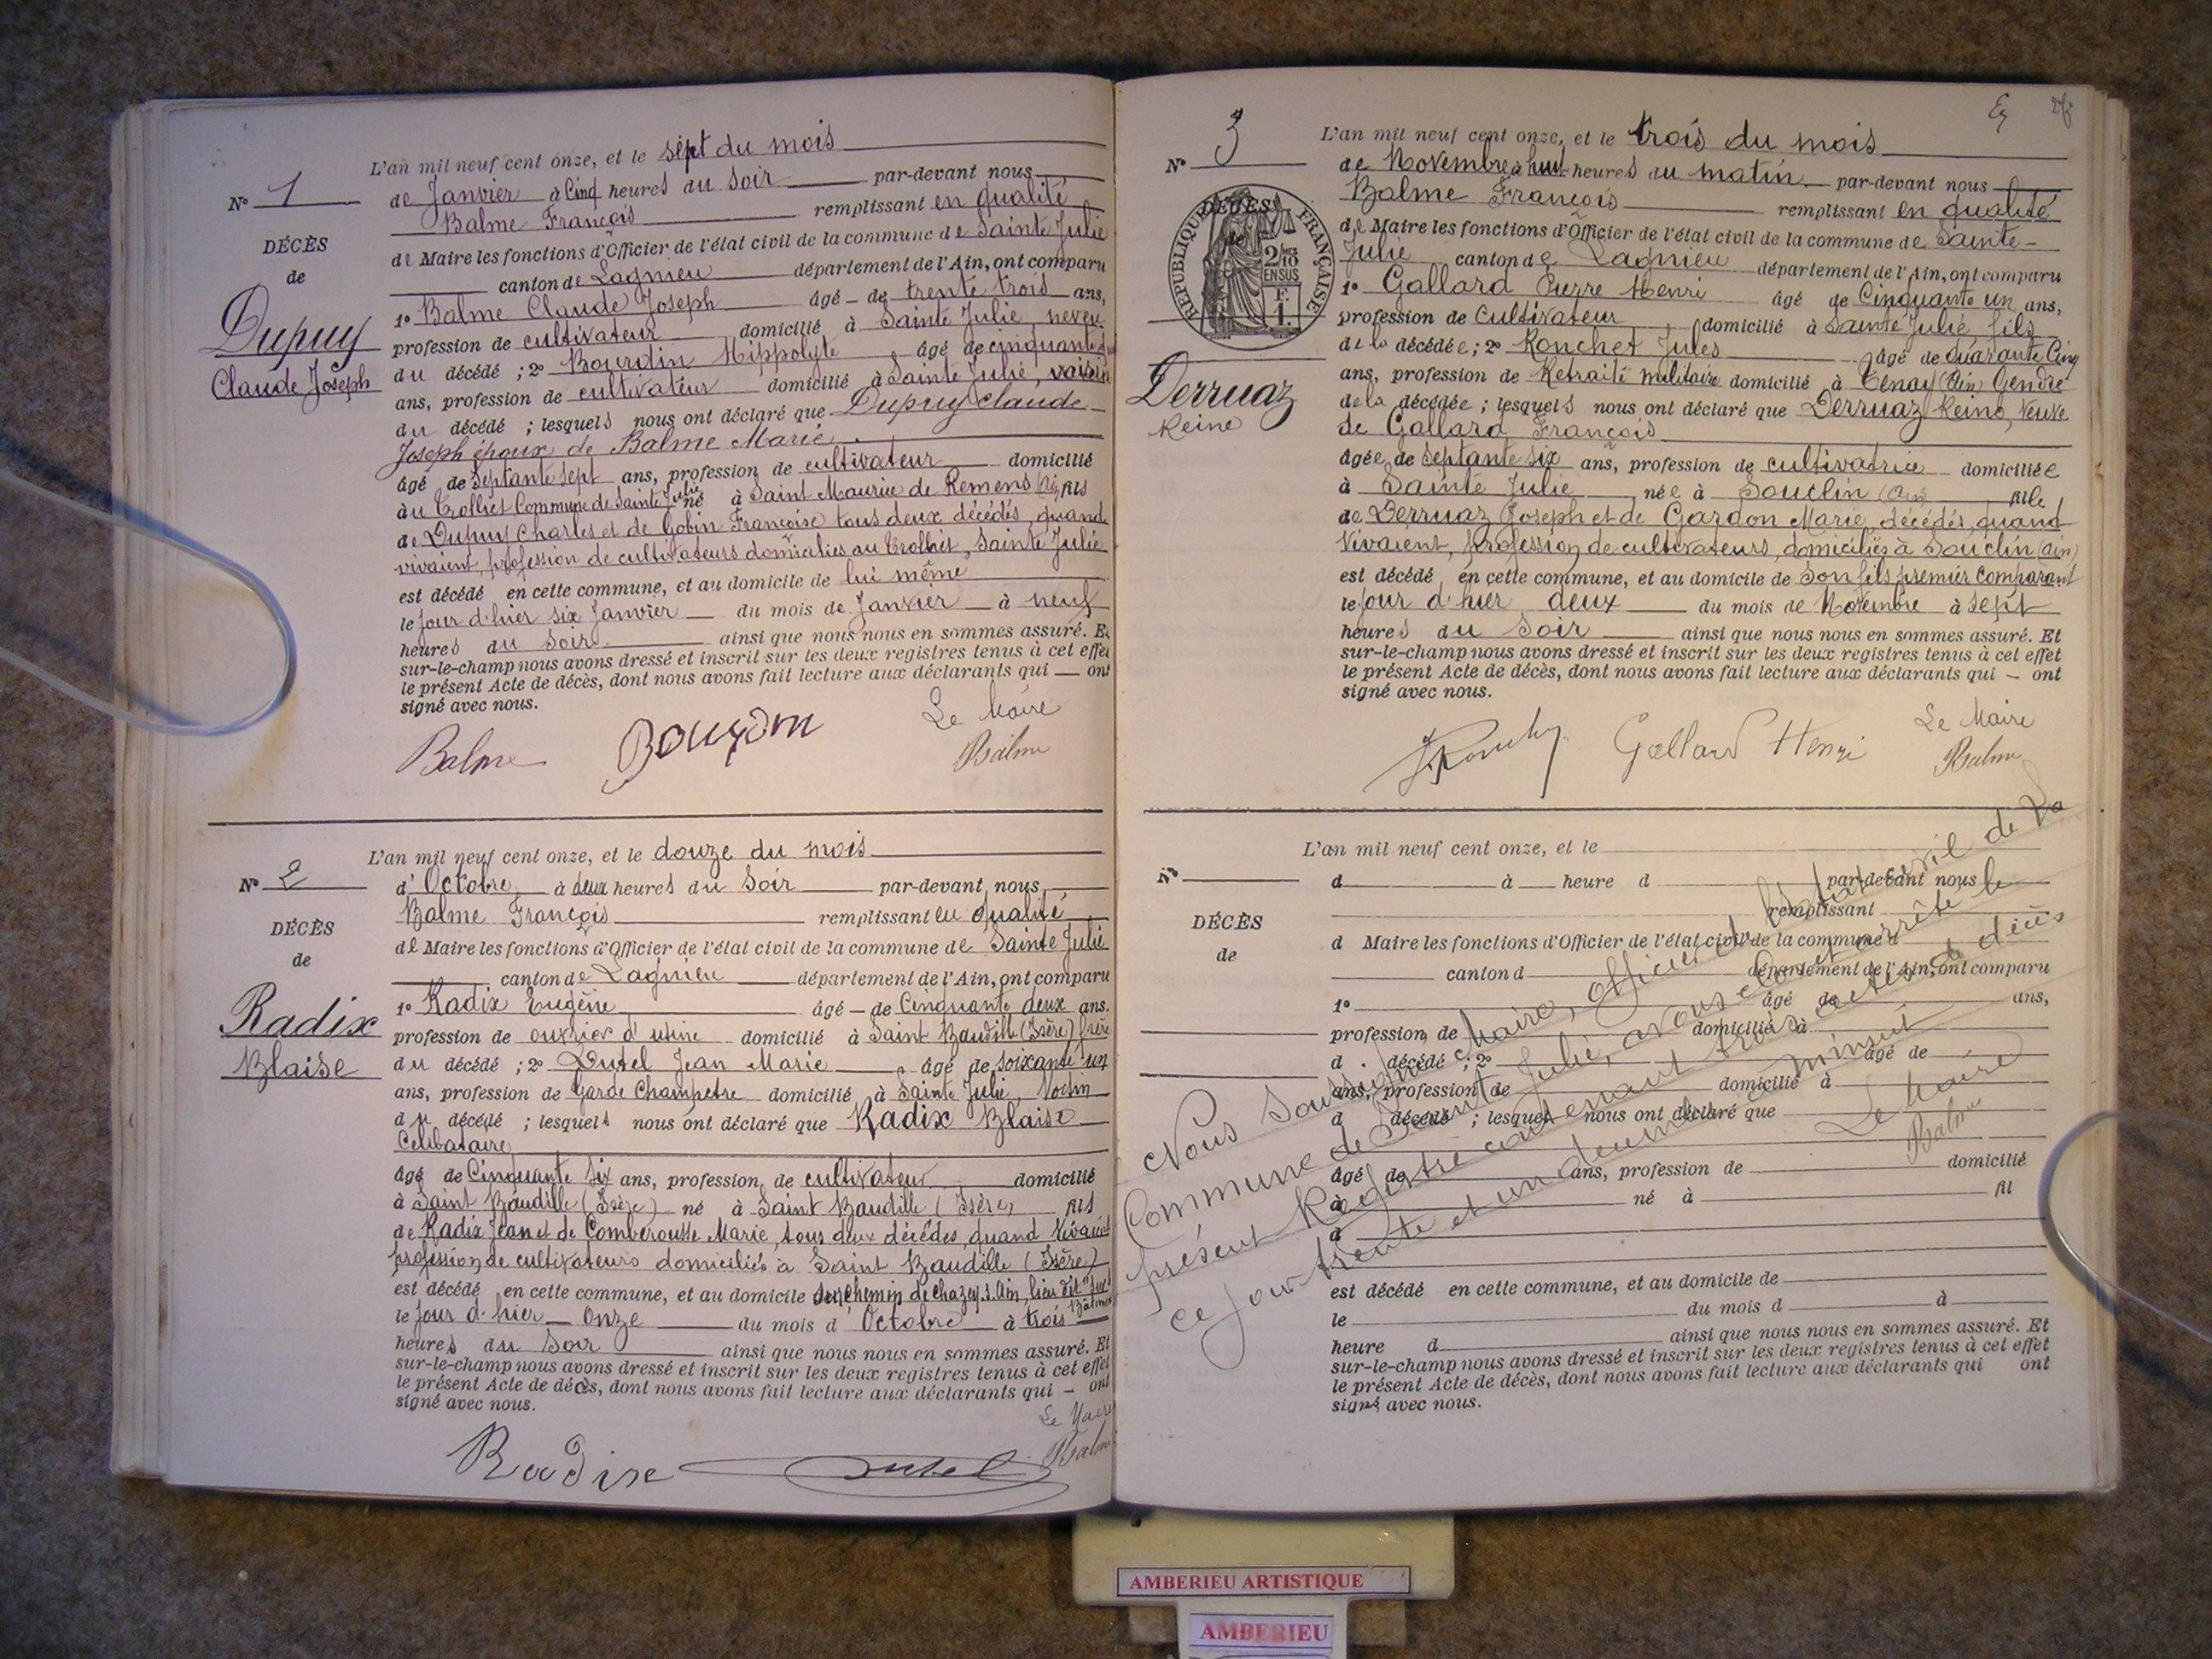 L'an mil neuf cent onze, et le sept du mois
N° 1
de Janvier à Cinq heures du Soir par-devant nous
Balme François remplissant en qualité
de Maire les fonctions d'Officier de l'état civil de la commune de Sainte Julie
canton de Lagnieu département de l'Ain, ont comparu
DÉCÈS
de
Dupuy
Claude Joseph
1° Balme Claude Joseph âgé de trente trois ans,
profession de cultivateur domicilié à Sainte Julie, neveu
du décédé ; 2° Bourdin Hippolyte âgé de cinquante
ans, profession de cultivateur domicilié à Sainte Julie, voisin
du décédé ; lesquels nous ont déclaré que Dupuy Claude
Joseph époux de Balme Marie
âgé de Septante sept ans, profession de cultivateur domicilié
au Trolliet Commune de Sainte Julie né à Saint Maurice de Remens (Ain) fils
de Dupuy Charles et de Gobin Françoise tous deux décédés, quand
vivaient, profession de cultivateurs domiciliés au Trolliet, Sainte Julie
est décédé en cette commune, et au domicile de lui même
le jour d'hier six Janvier du mois de Janvier à neuf
heures du Soir ainsi que nous nous en sommes assuré. Et
sur-le-champ nous avons dressé et inscrit sur les deux registres tenus à cet effet
le présent Acte de décès, dont nous avons fait lecture aux déclarants qui — ont
signé avec nous.
Le Maire
Balme
Bourdin
Balme
L'an mil neuf cent onze, et le douze du mois
N° 2
d'Octobre à deux heures du Soir par-devant nous
Balme François remplissant en qualité
de Maire les fonctions d'Officier de l'état civil de la commune de Sainte Julie
canton de Lagnieu département de l'Ain, ont comparu
DÉCÈS
de
Radix
Blaise
1° Radix Eugène âgé — de Cinquante deux ans.
profession de ouvrier d'usine domicilié à Saint Baudille (Isère) frère
du décédé ; 2° Dutel Jean Marie âgé de soixante un
ans, profession de Garde Champetre domicilié à Sainte Julie, Voisin
du décédé ; lesquels nous ont déclaré que Radix Blaise
Celibataire
âgé de Cinquante six ans, profession de cultivateur domicilié
à Saint Baudille (Isère) né à Saint Baudille (Isère) fils
de Radix Jean et de Comberousse Marie, tous deux décédés, quand vivaient
profession de cultivateurs domiciliés à Saint Baudille (Isère)
est décédé en cette commune, et au domicile sur chemin de Chazey s. Ain, lieu dit
le jour d'hier onze du mois d'Octobre à trois
heures du Soir ainsi que nous nous en sommes assuré. Et
sur-le-champ nous avons dressé et inscrit sur les deux registres tenus à cet effet
le présent Acte de décès, dont nous avons fait lecture aux déclarants qui — ont
signé avec nous.
Le Maire
Balme
Radix
Dutel
L'an mil neuf cent onze, et le trois du mois
N° 3
de Novembre à huit heures du matin par-devant nous
Balme François remplissant en qualité
de Maire les fonctions d'Officier de l'état civil de la commune de Sainte-
Julie canton de Lagnieu département de l'Ain, ont comparu
DÉCÈS
RÉPUBLIQUE FRANÇAISE
2/10
EN SUS
F.
1.
Derruaz
Reine
1° Gallard Pierre Henri âgé de Cinquante un ans,
profession de Cultivateur domicilié à Sainte Julie, fils
de la décédée ; 2° Ronchet Jules âgé de quarante Cinq
ans, profession de Retraité militaire domicilié à Tenay (Ain) Gendre
de la décédée ; lesquels nous ont déclaré que Derruaz Reine, Veuve
de Gallard François
âgée de Septante six ans, profession de cultivatrice domiciliée
à Sainte Julie née à Souclin (Ain) fille
de Derruaz Joseph et de Gardon Marie, décédés, quand
vivaient, profession de cultivateurs, domiciliés à Souclin (Ain)
est décédé en cette commune, et au domicile de Son fils premier comparant
le jour d'hier deux du mois de Novembre à sept
heures du Soir ainsi que nous nous en sommes assuré. Et
sur-le-champ nous avons dressé et inscrit sur les deux registres tenus à cet effet
le présent Acte de décès, dont nous avons fait lecture aux déclarants qui — ont
signé avec nous.
Le Maire
Gallard Henri
Balme
L'an mil neuf cent onze, et le
N°
d à heure d par-devant nous
remplissant
d Maire les fonctions d'Officier de l'état civil de la commune d
canton d département de l'Ain, ont comparu
DÉCÈS
de
1° âgé de ans,
profession de domicilié à
d décédé ; 2° âgé de
ans, profession de domicilié à
d décédé ; lesquel nous ont déclaré que
âgé de ans, profession de domicilié
à né à fil
d
est décédé en cette commune, et au domicile de
le du mois d à
heure d ainsi que nous nous en sommes assuré. Et
sur-le-champ nous avons dressé et inscrit sur les deux registres tenus à cet effet
le présent Acte de décès, dont nous avons fait lecture aux déclarants qui ont
signé avec nous.
Nous Soussigné Maire, Officier de l'état civil de la
Commune de Sainte Julie, avons clos et arrêté le
présent Registre contenant trois actes de décès
ce jour trente et un décembre à minuit
Le Maire
Balme
AMBERIEU ARTISTIQUE
AMBERIEU